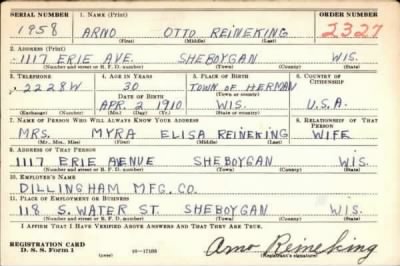 SERIAL NUMBER 1. NAME (Print) ORDER NUMBER
1958 ARNO OTTO REINEKING 2327
(First) (Middle) (Last)
2. ADDRESS (Print)
1117 ERIE AVE. SHEBOYGAN WIS.
(Number and street or R. F. D. number) (Town) (County) (State)
3. TELEPHONE 4. AGE IN YEARS 5. PLACE OF BIRTH 6. COUNTRY OF CITIZENSHIP
2228W 30 TOWN OF HERMAN
DATE OF BIRTH (Town or county)
APR. 2 1910 WIS. U.S.A.
(Exchange) (Number) (Mo.) (Day) (Yr.) (State or country)
7. NAME OF PERSON WHO WILL ALWAYS KNOW YOUR ADDRESS 8. RELATIONSHIP OF THAT PERSON
MRS. MYRA ELISA REINEKING WIFE
(Mr., Mrs., Miss) (First) (Middle) (Last)
9. ADDRESS OF THAT PERSON
1117 ERIE AVENUE SHEBOYGAN WIS.
(Number and street or R. F. D. number) (Town) (County) (State)
10. EMPLOYER'S NAME
DILLINGHAM MFG. CO.
11. PLACE OF EMPLOYMENT OR BUSINESS
118 S. WATER ST. SHEBOYGAN WIS.
(Number and street or R. F. D. number) (Town) (County) (State)
I AFFIRM THAT I HAVE VERIFIED ABOVE ANSWERS AND THAT THEY ARE TRUE.
REGISTRATION CARD
D. S. S. Form 1 (over) 16—17105 Arno Reineking
(Registrant's signature)